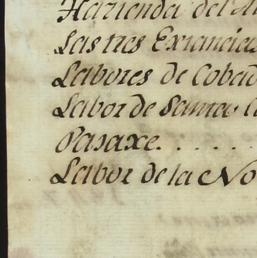 Hazienda del
Las tres Extancias
Labores de Cobad
Labor de Santa
Pasaxe. . . . . .
Labor de la No